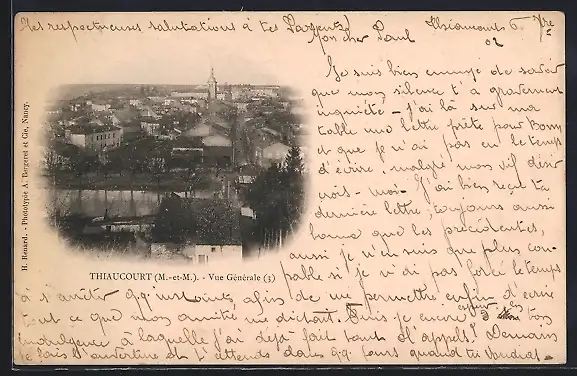 Mes respectueuses salutations à tes Parents
Mon cher Paul Thiaucourt 6 9bre
02
Je suis bien ennuyé de savoir
que mon silence t'a gravement
inquiété - j'ai là sur ma
table une lettre prête pour
et que je n'ai pas eu le temps
d'écrire, malgré mon vif désir
crois-moi. J'ai bien reçu ta
dernière lettre, toujours aussi
bonne que les précédentes,
aussi je n'en suis que plus cou-
pable si je n'ai pas forcé le temps
à s'arrêter qq. instants, afin de me permettre enfin d'écrire
tout ce que mon amitié me dictait. Puis-je encore à ton
indulgence à laquelle j'ai déjà fait tant d'appels! Demain
je fais l'ouverture et t'attends dans qq jours quand tu voudras.
THIAUCOURT (M.-et-M.). - Vue Générale (3)
H. Renard. - Phototypie A. Bergeret et Cie, Nancy.